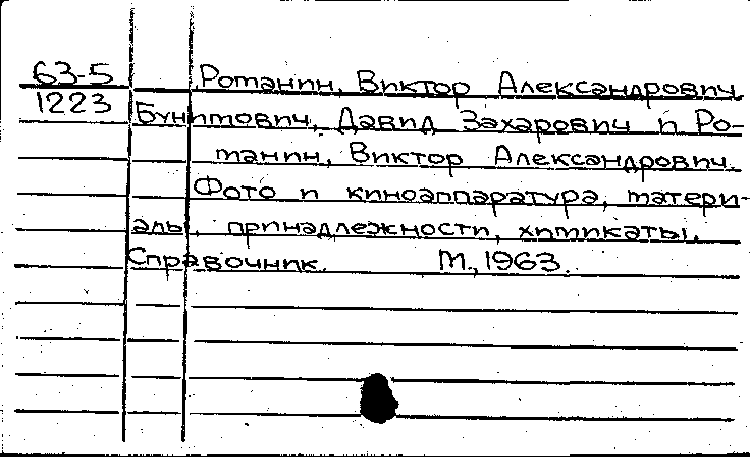 63-5 Романин, Виктор Александрович.
1223 Бунимович, Давид Захарович и Ро-
манин, Виктор Александрович.
Фото и киноаппаратура, матери-
алы, принадлежности, химикаты.
Справочник. М., 1963.